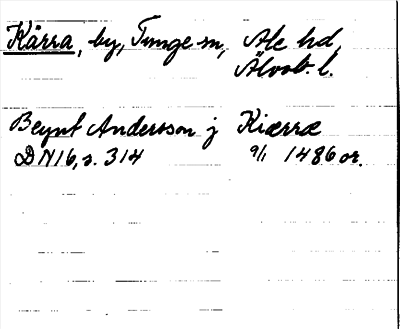 Kärra, by, Tunge sn, Ale hd,
Älvsb. l.
Beynt Andersson j Kiærræ
DN16, s. 314 9/1 1486 or.